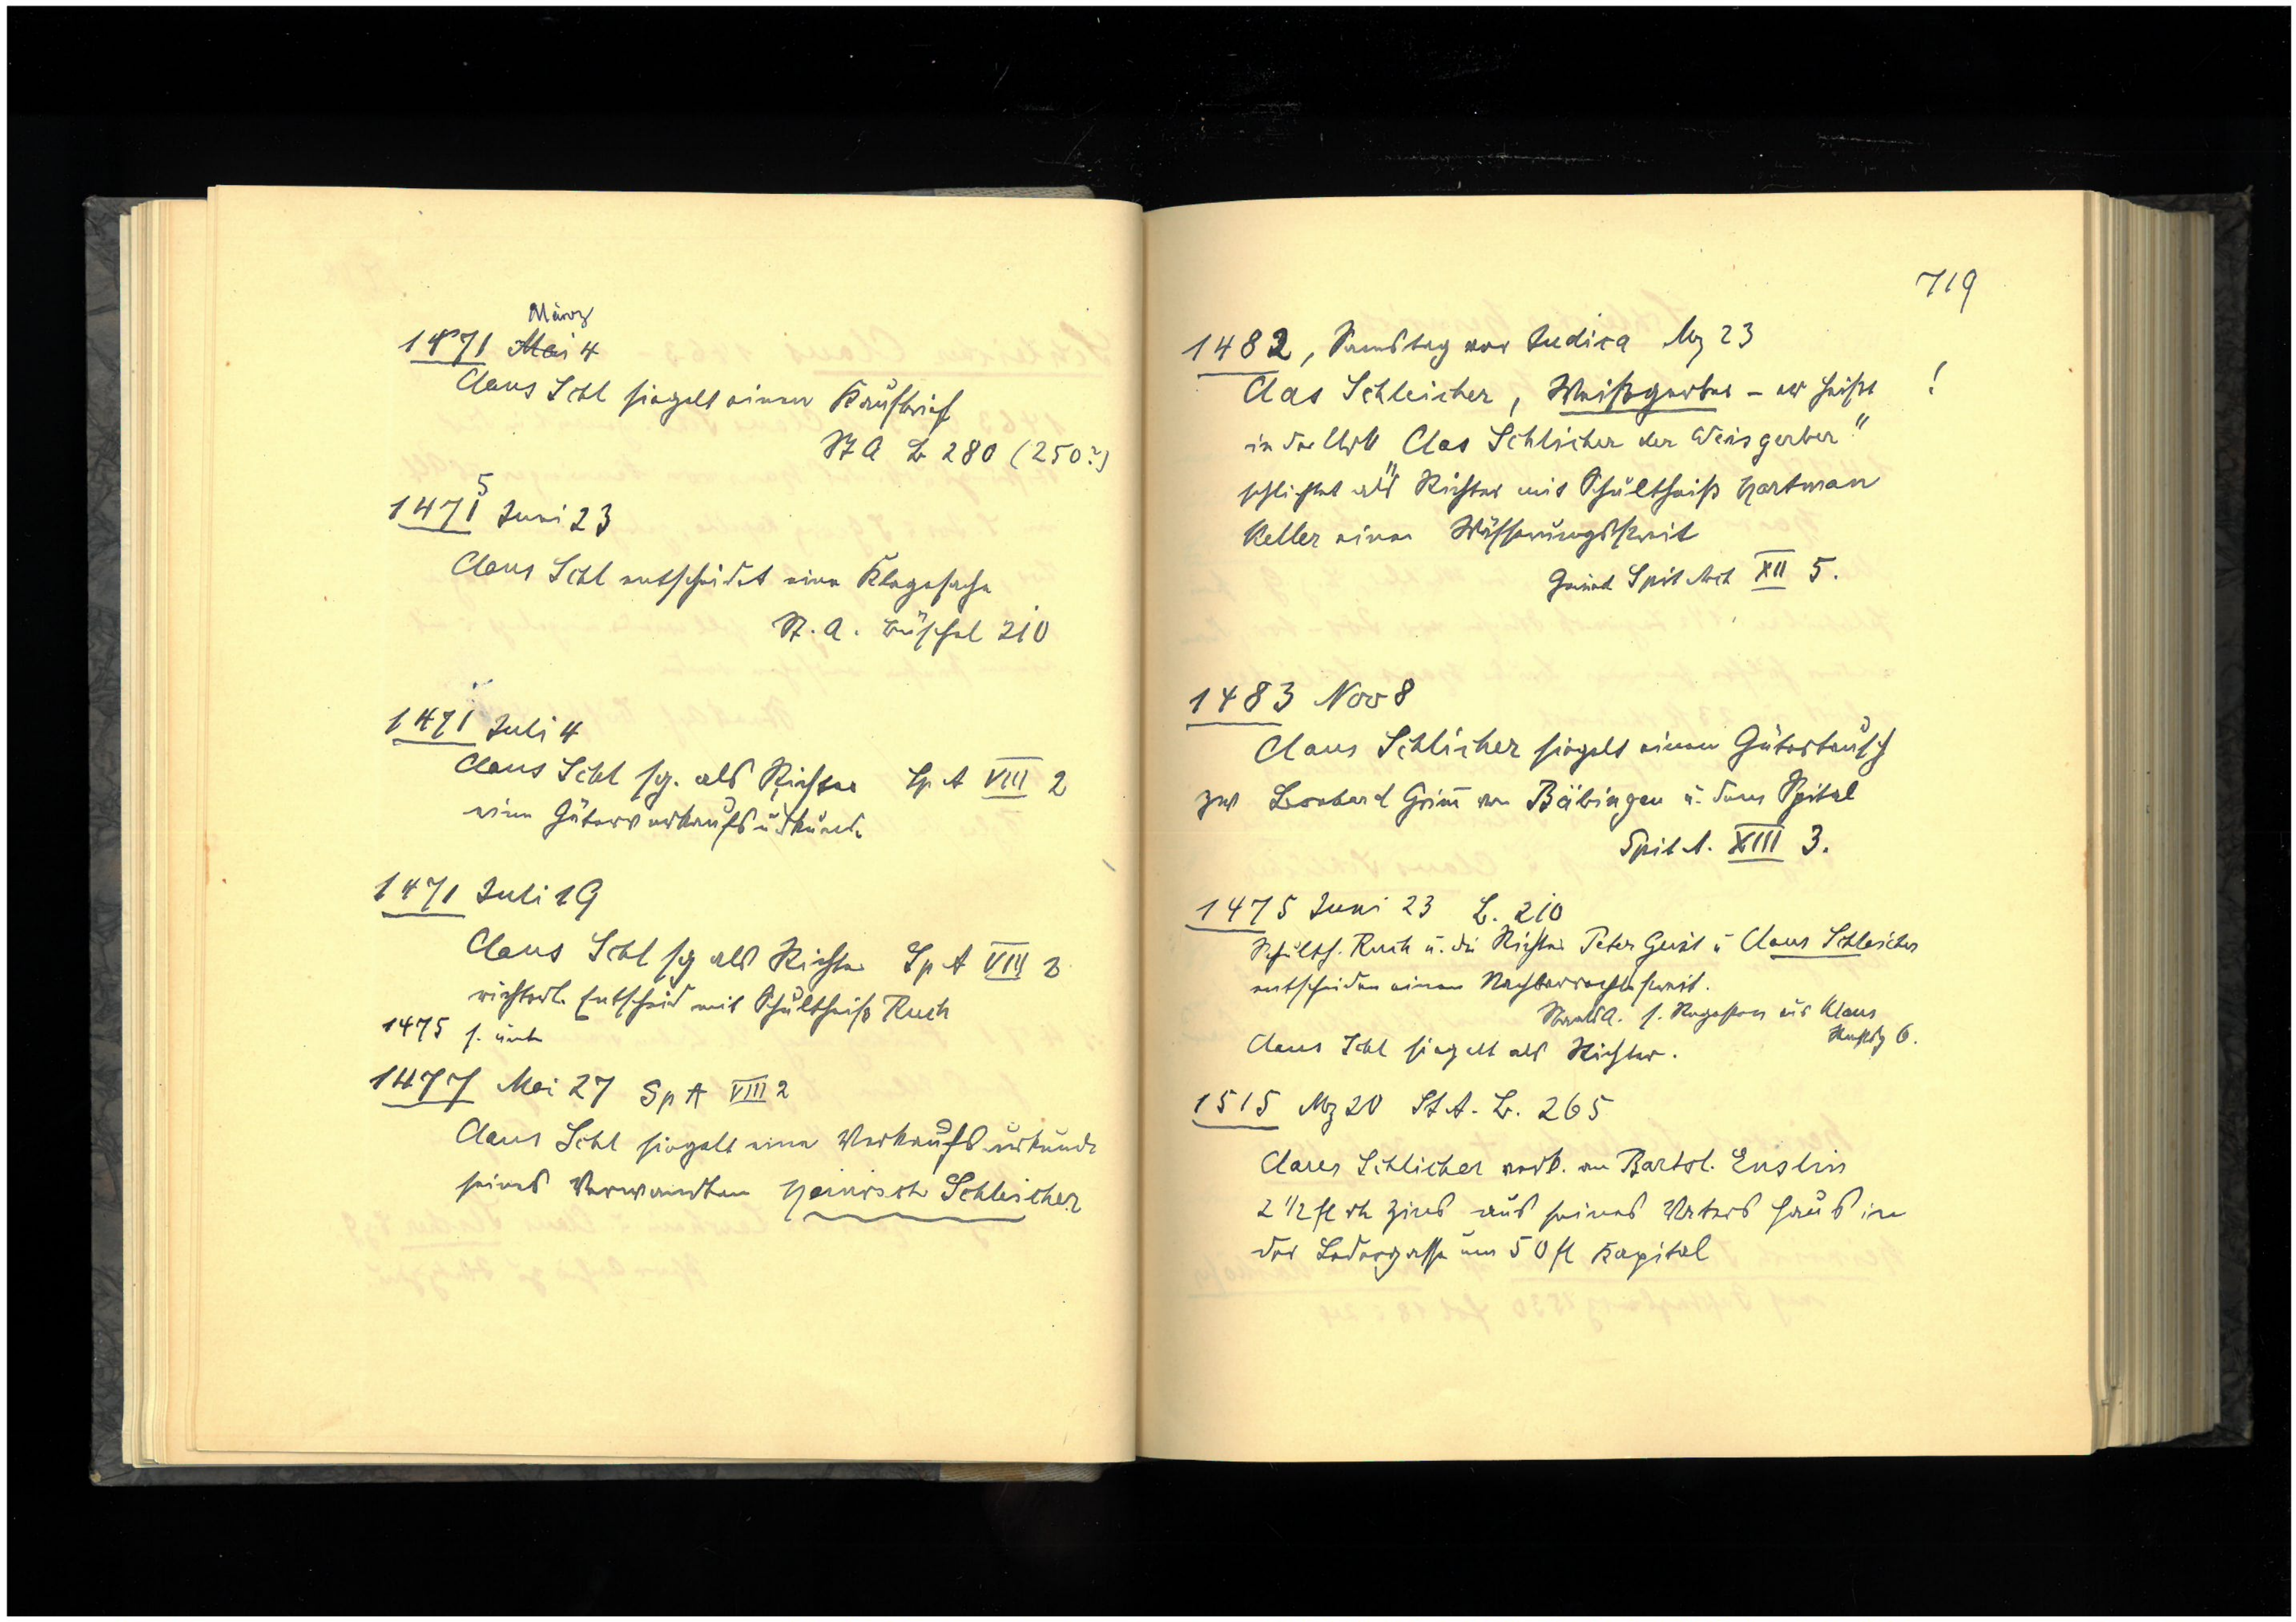 März
1471 Mai 4
Claus Schl siegelt einen Kaufbrief
St A B 280 (250?)
5
1471 Juni 23
Claus Schl entscheidet eine Klagesache
St. A. Büschel 210
1471 Juli 4
Claus Schl sg. als Richter Sp A VIII 2
eine Güterverkaufsurkunde
1471 Juli 19
Claus Schl sg als Richter Sp A VIII 2
richterl. Entscheid mit Schultheiß Ruch
1475 s. unten
1477 Mai 27 Sp A VIII 2
Claus Schl siegelt eine Verkaufsurkunde
seines Verwandten Heinrich Schleicher
719
1482, Samstag vor Judica Mz 23
Clas Schleicher, Weißgerber - er heißt !
in der Urk "Clas Schlicher der Weisgerber"
schlichtet als Richter mit Schultheiß Hartman
Keller einen Wässerungsstreit
Gmünd Spit Arch XII 5.
1483 Nov 8
Claus Schlicher siegelt einen Gütertausch
zw Leonhard Grim von Bäbingen u. dem Spital
Spit A. XIII 3.
1475 Juni 23 B. 210
Schulth. Ruch u. die Richter Peter Geist u Claus Schleicher
entscheiden einen Nachbarrechtsstreit.
Staatsa. s. Regesten aus Klaus
6.
Claus Schl siegelt als Richter.
1515 Mz 20 St A. B. 265
Schlicher verk. an Bartol. Enslin
2 1/2 fl rh Zins aus seines Vaters Haus in
der Ledergasse um 50 fl Kapital